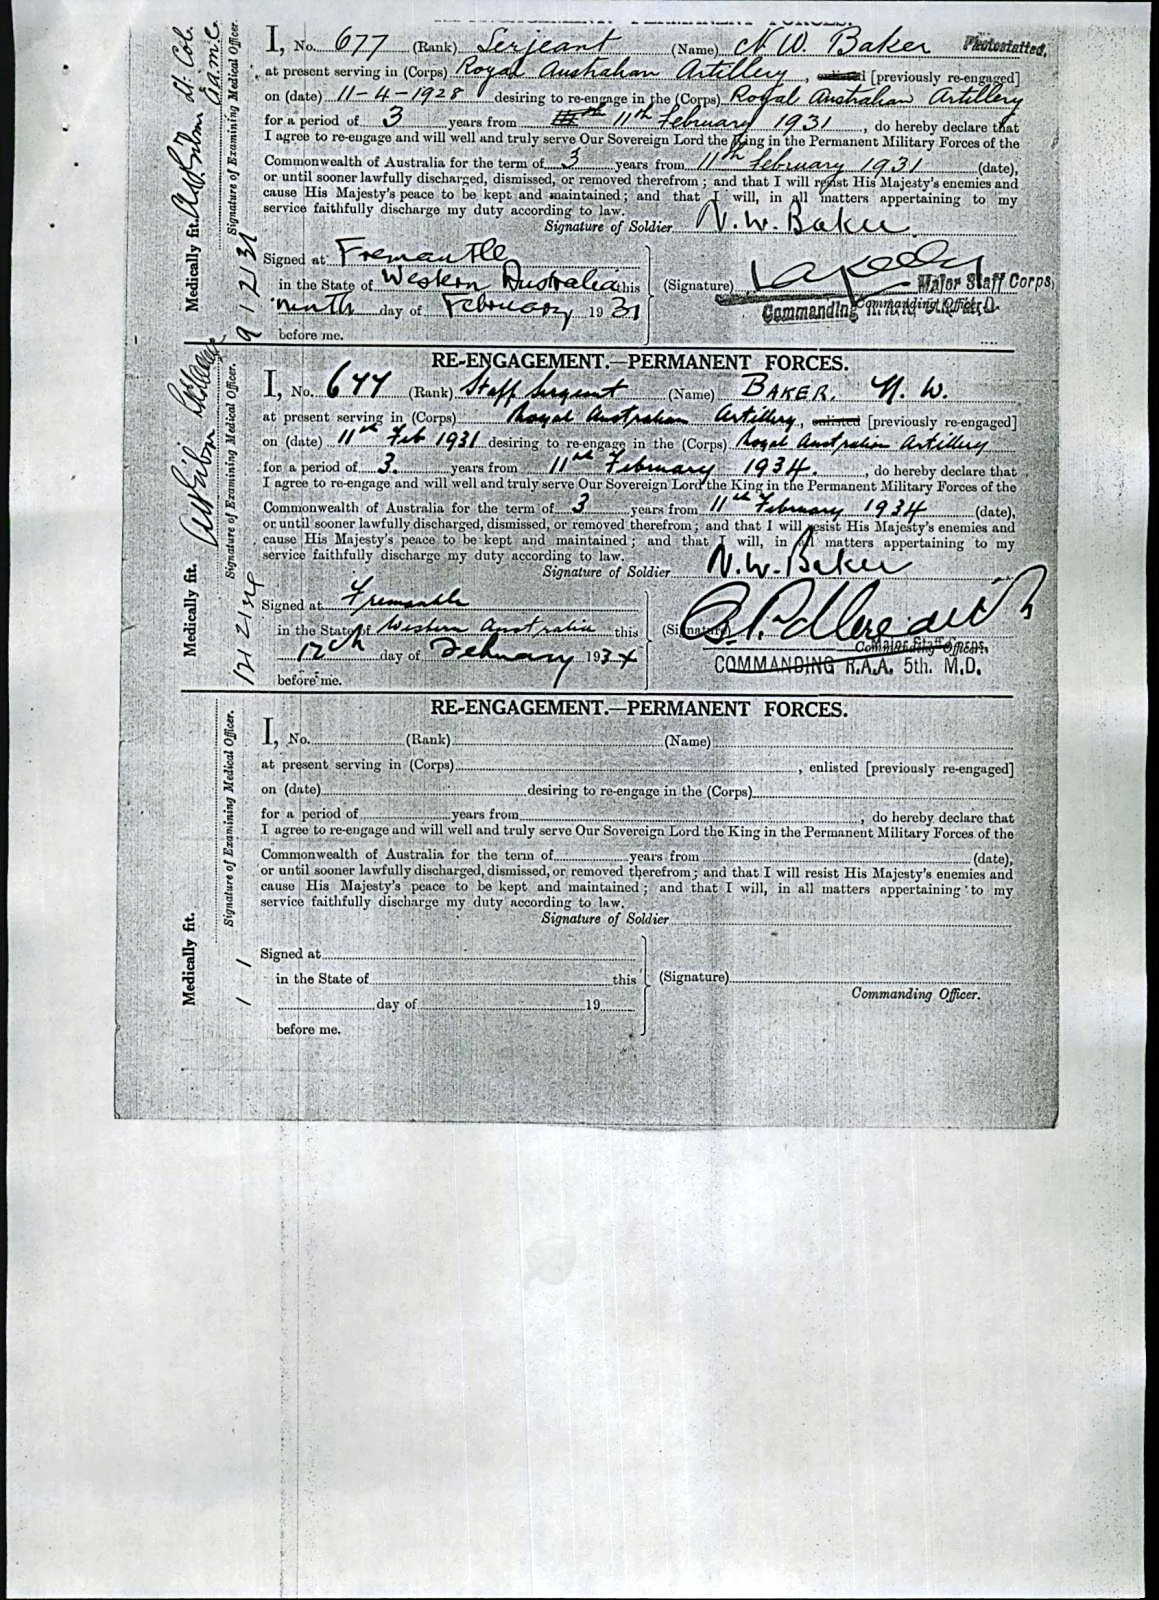 RE-ENGAGEMENT.—PERMANENT FORCES.
I, No. 677 (Rank) Serjeant (Name) N W. Baker Photostatted.
at present serving in (Corps) Royal Australian Artillery, enlisted [previously re-engaged]
on (date) 11-4-1928 desiring to re-engage in the (Corps) Royal Australian Artillery
for a period of 3 years from 11th February 1931, do hereby declare that
I agree to re-engage and will well and truly serve Our Sovereign Lord the King in the Permanent Military Forces of the
Commonwealth of Australia for the term of 3 years from 11th February 1931 (date),
or until sooner lawfully discharged, dismissed, or removed therefrom; and that I will resist His Majesty's enemies and
cause His Majesty's peace to be kept and maintained; and that I will, in all matters appertaining to my
service faithfully discharge my duty according to law.
Signature of Soldier N. W. Baker
Signed at Fremantle
in the State of Western Australia this
ninth day of February 1931
before me.
(Signature) Major Staff Corps,
Commanding Officer.
Commanding R.A.A. 5th M.D.
Medically fit. Lt. Col. A.A.M.C.
Signature of Examining Medical Officer.
9/2/31
RE-ENGAGEMENT.—PERMANENT FORCES.
I, No. 677 (Rank) Staff Sergeant (Name) BAKER. N. W.
at present serving in (Corps) Royal Australian Artillery, enlisted [previously re-engaged]
on (date) 11th Feb 1931 desiring to re-engage in the (Corps) Royal Australian Artillery
for a period of 3. years from 11th February 1934., do hereby declare that
I agree to re-engage and will well and truly serve Our Sovereign Lord the King in the Permanent Military Forces of the
Commonwealth of Australia for the term of 3 years from 11th February 1934 (date),
or until sooner lawfully discharged, dismissed, or removed therefrom; and that I will resist His Majesty's enemies and
cause His Majesty's peace to be kept and maintained; and that I will, in all matters appertaining to my
service faithfully discharge my duty according to law.
Signature of Soldier N. W. Baker
Signed at Fremantle
in the State of Western Australia this
12th day of February 1934
before me.
(Signature)
Major Staff Corps.
Commanding Officer.
COMMANDING R.A.A. 5th. M.D.
Medically fit.
Signature of Examining Medical Officer.
12/2/34
RE-ENGAGEMENT.—PERMANENT FORCES.
I, No. (Rank) (Name)
at present serving in (Corps) , enlisted [previously re-engaged]
on (date) desiring to re-engage in the (Corps)
for a period of years from , do hereby declare that
I agree to re-engage and will well and truly serve Our Sovereign Lord the King in the Permanent Military Forces of the
Commonwealth of Australia for the term of years from (date),
or until sooner lawfully discharged, dismissed, or removed therefrom; and that I will resist His Majesty's enemies and
cause His Majesty's peace to be kept and maintained; and that I will, in all matters appertaining to my
service faithfully discharge my duty according to law.
Signature of Soldier
Signed at
in the State of this
day of 19
before me.
(Signature)
Commanding Officer.
Medically fit.
Signature of Examining Medical Officer.
/ /